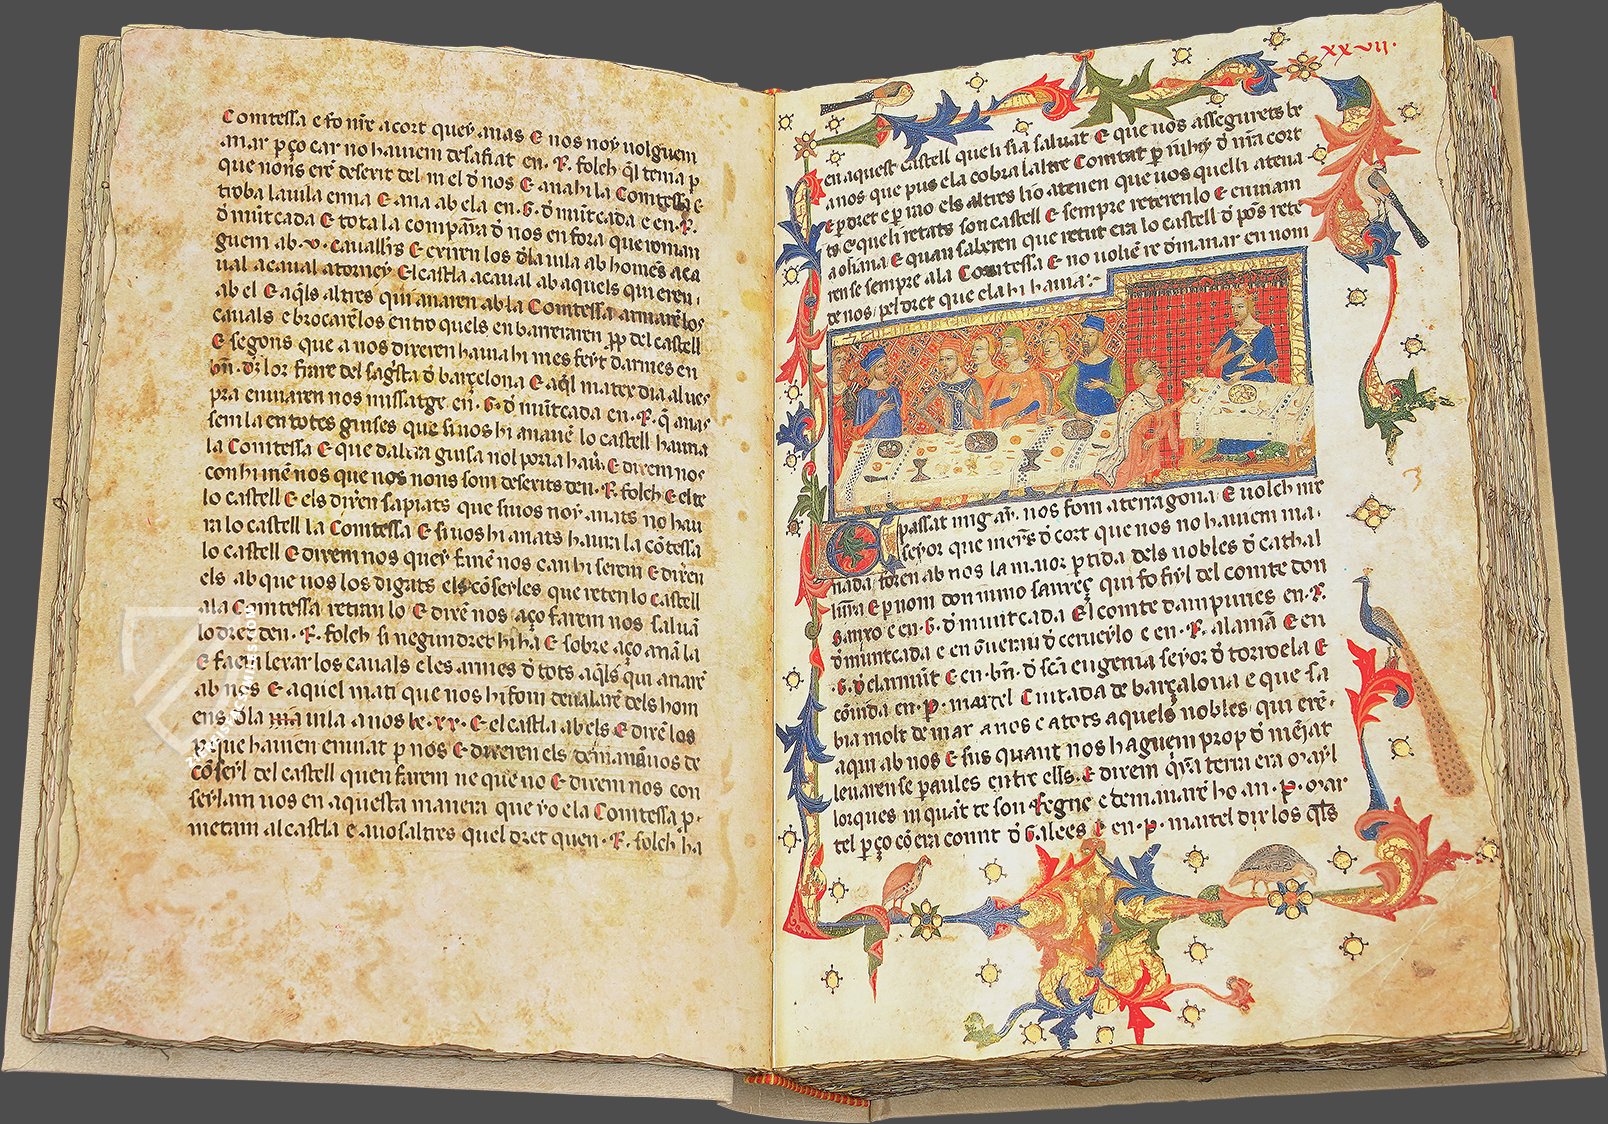 Comtessa e fo nr̄e acort quey anas E nos noy uolguem
anar p̱ço car no hauiem desafiat en .R. folch q̄l tenia p̱
que nons erē deserit del ni el d̄ nos E anahi la Comtessa e
troba la uila erma E ana ab ela en .G. d̄ mūtcada e en .R.
d̄ mūtcada E tota la companȳa d̄ nos en fora que roman
guem ab .v. cauallr̄s E exiren los d̄la uila ab homēs a ca
ual acaual atorney E l castla acaual ab aquels qui eren
ab el E aq̄ls altres qui anaren ab la Comtessa armarē los
cauals e brocarē los entro quels en barreraren p̱p̱ del castell
E segons que a nos dixeren hauia hi mes feyt darmes en
bn̄. d̄z lor frare del sag̃sta d̄ barçelona E aq̄l matex dia al ues
pra enuiaren nos missatge en .G. d̄ mūtcada en .R. q̄ anas
sem la en totes guises que si nos hi anauē lo castell hauria
la Comtessa E que daltra guisa nol poria hau̇ E dixem nos
con hi inē nos que nos nons som deserits den .R. folch E el te
lo castell E els dix̄en sapiats que si uos noy anats no hau
ra lo castell la Comtessa E si uos hi anats haura la cōtessa
lo castell E dixem nos quey farē nos can hi serem E dix̄en
els ab que uos los digats els cōseyles que reten lo castell
ala Comtessa retran lo E dixē nos aço farem nos saluā
lo dret den .R. folch si negun dret hi ha E sobre aço anā la
E faem leuar los cauals e les armes d̄ tots aq̄ls qui anarē
ab nos E aquel mati que nos hi fom deualarē dels hom
ens d̄la uila a nos be .xx. E el castla ab els E dixē los
p̱ que hauien enuiat p̱ nos E dixeren els demanā uos de
cōseyl del castell quen farem ne que no E dixem nos con
seylam uos en aquesta manera que yo e la Comtessa p̱
metam al castla e a uosaltres quel dret quen .R. folch ha
xxvij.
en aquest castell que li sia saluat E que uos assegurets be
a nos que pus ela cobra laltre Comtat p̱ iuhij d̄ nr̄a cort
E p̱ dret e p̱ rao els altres li o atenen que uos queli atena
ts E queli retats son castell E sempre reterenlo E eniuiam
a oliana E quan saberen que retut era lo castell d̄ pōs rete
rense sempre ala Comtessa E no uoliē re d̄manar en nom
de nos pel dret que ela hi hauia:-
E passat mig ay̅ nos fom a terragona E uolch nr̄e
seyor que menȳs d̄ cort que nos no hauiem ma
nada foren ab nos la maior p̱tida dels nobles d̄ cathal
lun̄ya E p̱ nom don nuno sanxeç qui fo fiyl del comte don
sanxo e en .G. d̄ mūtcada E l comte dampuries en .R.
d̄ mūntcada e en gūerau d̄ ceruerylo e en .R. alamā E en
.G. d̄ claramūt E en bn̄. d̄ scā eugenia seyor d̄ torroela E
cōuida en .P. martel Ciutada de barçalona e que sa
bia molt de mar a nos e a tots aquels nobles qui erē
aqui ab nos E fus quant nos haguem prop d̄ mējat
leuarense paraules entre ells E dixem q̄yn̄a terra era mayl
lorques ni quāt te son Regne e demanarē ho an .P. mar
tel p̱ço cō era comit d̄ Galees E en .P. martel dix los q̄ls